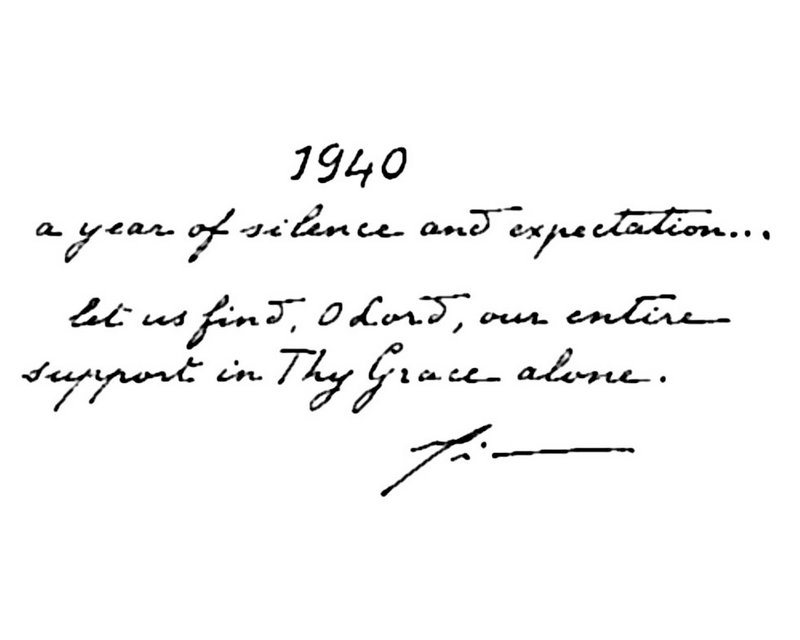 1940
a year of silence and expectation...
let us find, O Lord, our entire
support in Thy Grace alone.